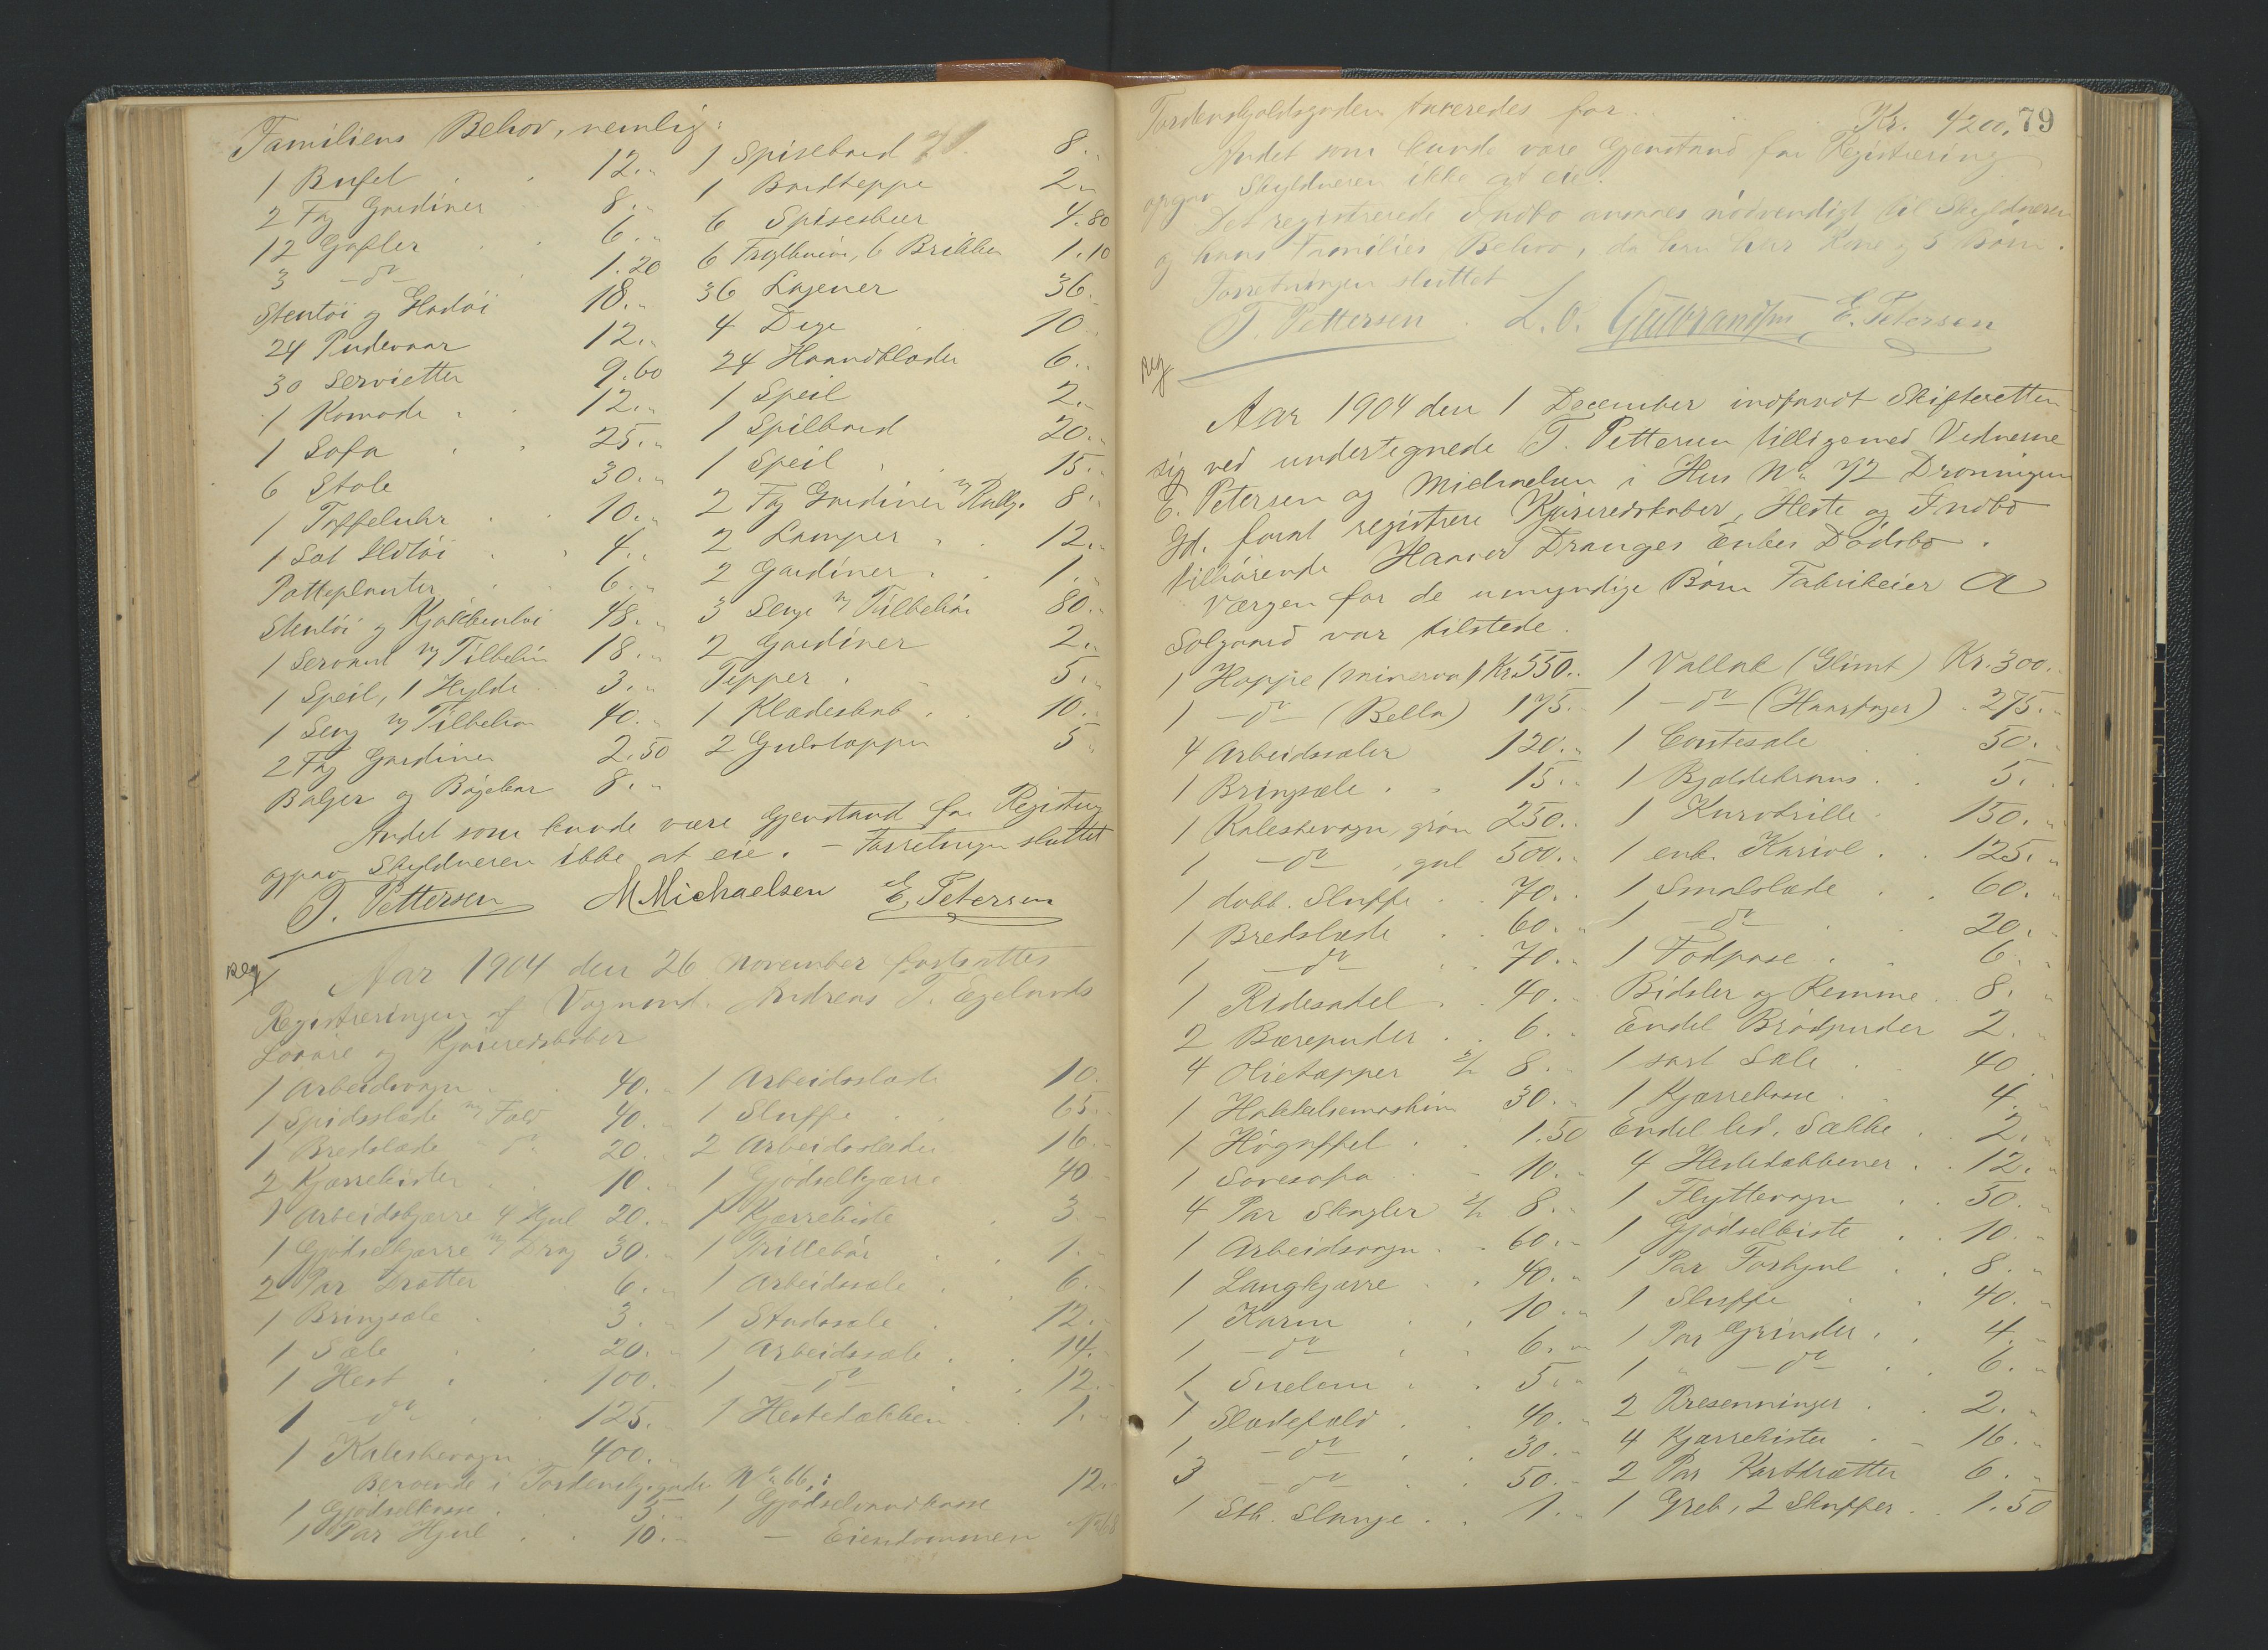 Familiens Behov, nemlig:
1 Bufet 12.„ 1 Spisebord 8.„
2 Fag Gardiner 8.„ 1 Bordteppe 2.„
12 Gafler 6.„ 6 Spiseskeer 4.80
3 -do- 1.20 6 6 Brikker 1.10
Stentøi og 18.„ 36 Lagener 36.„
24 Pudevaar 12.„ 4 Duge 10.„
30 Servietter 9.60 24 Haandklæder 6.„
1 Komode 12.„ 1 Speil 2.„
1 Sofa 25.„ 1 Spilbord 20.„
6 Stole 30.„ 1 Speil 15.„
1 Taffeluhr 10.„ 2 Fag Gardiner m/ Rullg. 8.„
1 Sæt Ildtøi 4.„ 2 Lamper 12.„
Potteplanter 6.„ 2 Gardiner 1.„
Stentøi og Kjøkkentøi 48.„ 3 Senge m/ Tilbehør 80.„
1 Servant m/ Tilbehør 18.„ 2 Gardiner 2.„
1 Speil, 1 Hylde 3.„ Tepper 5.„
1 Seng m/ Tilbehør 40.„ 1 Klædeskab 10.„
2 Fag Gardiner 2.50 2 Gulvtæpper 5.„
Baljer og Bøgekar 8.„
Andet som kunde være Gjenstand for Registrering
opgav Skyldneren ikke at eie. – Forretningen sluttet
T. Pettersen M Michaelsen E. Petersen
Reg
Aar 1904 den 26 November fortsattes
Registreringen af Vognmd. Andreas T. Egelands
Løsøre og Kjøreredskaber
1 Arbeidsvogn 40.„ 1 Arbeidsslæde 10.
1 Spidsslæde m/ Fæld 40.„ 1 Sluffe 65.„
1 Bredslæde „ do 20.„ 2 Arbeidsslæder 16.„
2 Kjærrekister 10.„ 1 Gjødselkjærre 40
1 Arbeidskjærre 4 Hjul 20.„ 1 Kjærrekiste 3.„
1 Gjødselkjærre m/ Drag 30.„ 1 Trillebør 1.„
2 Par Drætter 6.„ 1 Arbeidssæle 6.„
1 Bringsæle 3.„ 1 Stadssæle 12.„
1 Sæle 20.„ 1 Arbeidssæle 14.„
1 Hest 100.„ 1 -do- 12.„
1 -do- 125.„ 1 Hestedækken 1.„
1 Kaleschevogn 400.„
Beroende i Tordenskj.gaden No 66:
1 Gjødselkasse 5.„ 1 Gjødselvandkasse 12.„
1 Par Hjul 10.„ – Eiendommen No 68
79
Tordenskjoldsgaden taxeredes for Kr. 4200.
Andet som kunde være Gjenstand for Registrering
opgav Skyldneren ikke at eie.
Det registrerede Indbo ansaaes nødvendigt til Skyldneren
og hans Families Behov, da han har Kone og 5 Børn.
Forretningen sluttet
T. Pettersen L. O. Gulbrandsen E. Petersen
Reg
Aar 1904 den 1 December indfandt Skifteretten
sig ved undertegnede T. Pettersen tilligemed Vidnerne
E. Petersen og Michaelsen i Hus No 72 Dronningens
Gd. forat registrere Kjøreredskaber, Heste og Indbo
tilhørende Haaver Dranges Enkes Dødsbo.
Værgen for de umyndige Børn Fabrikeier A
Solgaard var tilstede.
1 Hoppe (Minerva) Kr. 350.„ 1 Vallak (Glimt) Kr. 300.„
1 -do- (Bella) 175.„ 1 -do- (Haarfager) 275.„
4 Arbeidssæler 120.„ 1 50.„
1 Bringsæle 15.„ 1 Bjeldekrans 5.„
1 Kaleschevogn, grøn 250.„ 1 Kurvtrille 150.„
1 -do- , gul 500.„ 1 enk. Kariol 125.„
1 dobb. Sluffe 70.„ 1 Smalslæde 60.„
1 Bredslæde 60.„ 1 -do- 20.„
1 -do- 70.„ 1 Fodpose 6.„
1 Ridesadel 40.„ Bidsler og Remme 8.„
2 Bærepuder 6.„ Endel Brødpuder 2.„
4 Olietæpper 8.„ 1 sort Sæle 40.„
1 Hakkelsemaskine 30.„ 1 Kjærrekasse 4.„
1 Høgaffel 1.50 Endel led. Sække 2.„
1 Sovesofa 10.„ 4 Hestedækkener 12.„
4 Par Skagler 8.„ 1 Flyttevogn 50.„
1 Arbeidsvogn 60.„ 1 Gjødselkiste 10.„
1 Langkjærre 40.„ 1 Par Forhjul 8.„
1 Karm 10.„ 1 Sluffe 40.„
1 -do- 6.„ 1 Par Grinder 4.„
1 5.„ 1 „ -do- 6.„
1 Slædefæld 40.„ 2 Presenninger 2.„
1 -do- 30.„ 4 Kjærrekister 16.„
3 -do- 50.„ 2 Par Kortdrætter 6.„
1 Stk. Slange 1.„ 1 Greb, 2 Skuffer 1.50